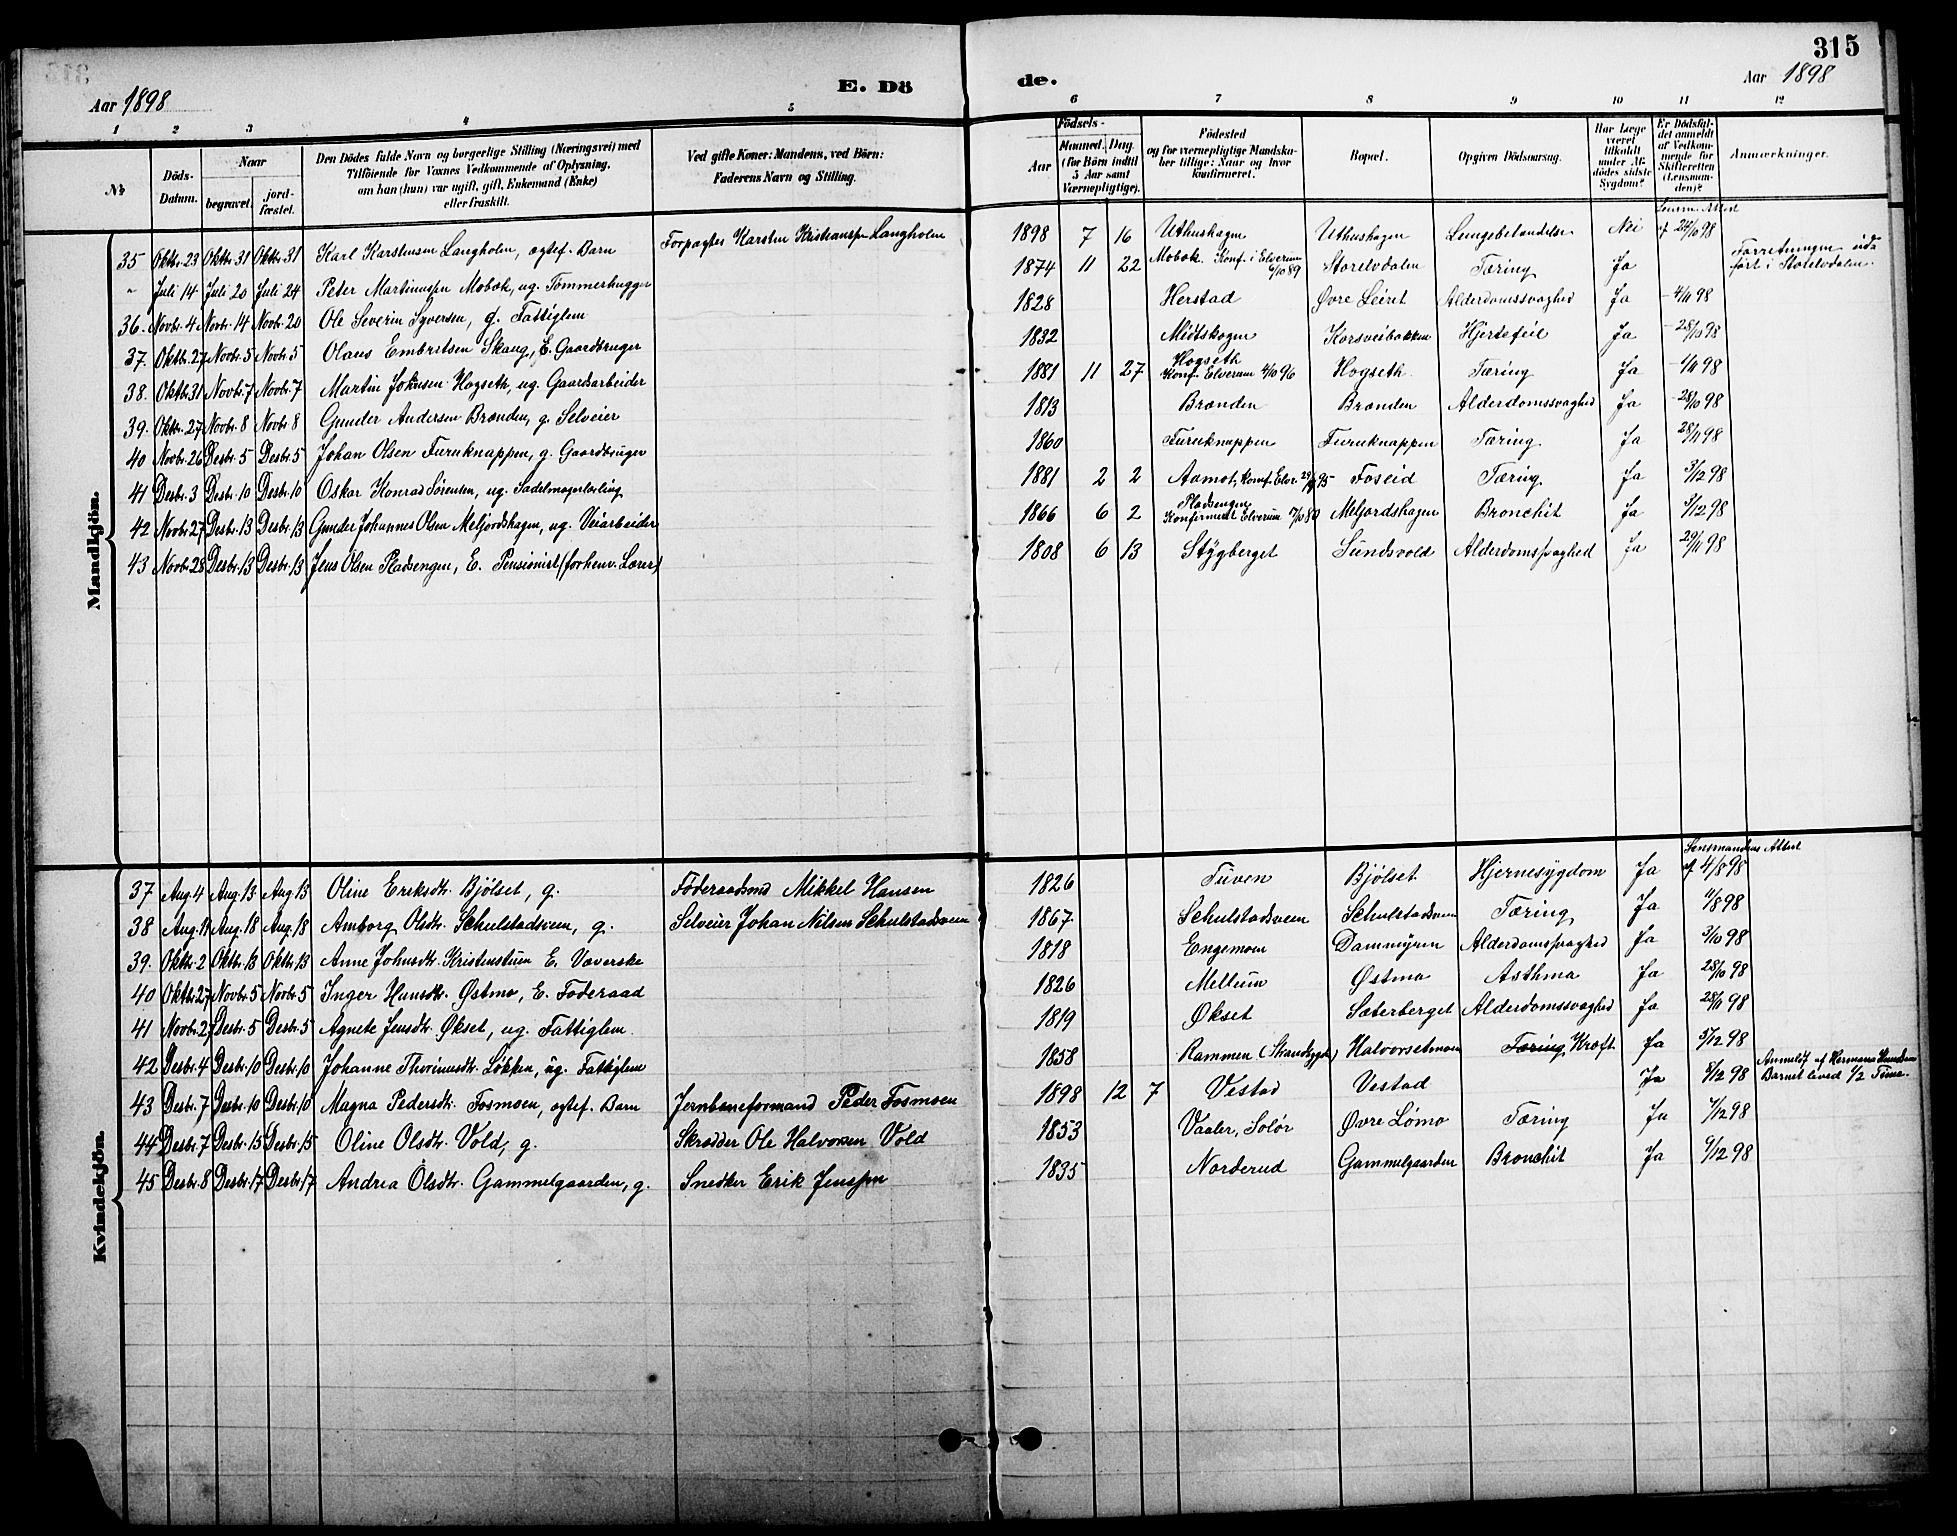 315
Aar 1898
E. Dö de.
Aar 1898
1 2 3 4 5 6 7 8 9 10 11 12
№
Döds-Datum.
Naar
begravet.
jord-fæstet.
Den Dödes fulde Navn og borgerlige Stilling (Næringsvei) med
Tilföiende for Voxnes Vedkommende af Oplysning,
om han (hun) var ugift, gift, Enkemand (Enke)
eller fraskilt.
Ved gifte Koner: Mandens, ved Börn:
Faderens Navn og Stilling.
Födsels-
Aar
Maaned. Dag.
(for Börn indtil
5 Aar samt
Værnepligtige).
Födested
og for værnepligtige Mandska-
ber tillige: Naar og hvor
konfirmeret.
Bopæl.
Opgiven Dödsaarsag.
Har Læge
været
tilkaldt
under Af-
dödes sidste
Sygdom?
Er Dödsfal-
det anmeldt
af Vedkom-
mende for
Skifteretten
(Lensman-
den)?
Anmærkninger.
Mandkjön.
35 Oktbr. 23 Oktbr. 31 Oktbr. 31 Karl Karstensen Langholm, ægtef. Barn Forpagter Karsten Kristiansen Langholm 1898 7 16 Uthushagen Uthushagen Lungebetændelse Nei Lensm. Attest af 24/10 98
" Juli 14 Juli 20 Juli 24 Peter Martinussen Mobæk, ug. Tømmerhugger 1874 11 22 Mobæk. Konf. i Elverum 6/10 89 Storelvdalen Tæring Ja Forretningen ud-
ført i Storelvdalen.
36. Novbr. 4 Novbr. 14 Novbr. 20 Ole Severin Syversen, g. Fattiglem 1828 Herstad Øvre Leiret Alderdomssvaghed Ja - 4/11 98
37. Oktbr. 27 Novbr. 5 Novbr. 5 Olaus Embretsen Skaug, E. Gaardbruger 1832 Midtskogen Korsveibakken Hjertefeil Ja - 28/10 98
38. Oktbr. 31 Novbr. 7 Novbr. 7 Martin Johnsen Hogseth, ug. Gaardsarbeider 1881 11 27 Hogseth Konf. Elverum 4/10 96 Hogseth Tæring Ja - 1/11 98
39. Oktbr. 27 Novbr. 8 Novbr. 8 Gunder Andersen Brænden, g. Selveier 1813 Brænden Brænden Alderdomssvaghed Ja 28/10 98
40 Novbr. 26 Desbr. 5 Desbr. 5 Johan Olsen Furuknappen, g. Gaardbruger 1860 Furuknappen Furuknappen Tæring Ja 28/11 98
41 Desbr. 3 Desbr. 10 Desbr. 10 Oskar Konrad Sørensen, ug. Sadelmagerlærling 1881 2 2 Aamot, Konf. Elv. 29/9 95 Foseid Tæring Ja 3/12 98
42 Novbr. 27 Desbr. 13 Desbr. 13 Gunder Johannes Olsen Mefjordshagen, ug. Veiarbeider 1866 6 2 Pladsengen Konfirmeret Elverum Mefjordshagen Bronchit Ja 3/12 98
43 Novbr. 28 Desbr. 13 Desbr. 13 Jens Olsen Pladsengen, E. Pensionist (forhenv. Lærer) 1808 6 13 Stygberget Sundsvold Alderdomssvaghed Ja 29/11 98
Kvindekjön.
37 Aug. 4 Aug. 13 Aug. 13 Oline Eriksdtr. Bjølset, g. Føderaadsmd Mikkel Hansen 1826 Tuven Bjølset Hjernesygdom Ja Lensmandens Attest af 4/8 98
38 Aug. 11 Aug. 18 Aug. 18 Amborg Olsdtr. Schulstadsveen, g. Selveier Johan Nilsen Schulstadsveen 1867 Schulstadsveen Schulstadsveen Tæring Ja 11/8 98
39. Oktbr. 2 Oktbr. 13 Oktbr. 13 Anne Johnsdtr. Kristenstuen E. Væverske 1818 Engemoen Dammyren Alderdomssvaghed Ja 3/10 98
40 Oktbr. 27 Novbr. 5 Novbr. 5 Inger Hansdtr. Østmo, E. Føderaad 1826 Meltum Østmo Asthma Ja 28/10 98
41 Novbr. 27 Desbr. 5 Desbr. 5 Agnete Jensdtr. Økset, ug. Fattiglem 1819 Økset Sæterberget Alderdomssvaghed Ja 28/11 98
42 Desbr. 4 Desbr. 10 Desbr. 10 Johanne Løkken, ug. Fattiglem 1858 Rammen Halvorsetmoen Tæring Kræft Ja 5/12 98
43 Desbr. 7 Desbr. 10 Desbr. 10 Magna Pedersdtr. Fosmoen, ægtef. Barn Jernbaneformand Peder Fosmoen 1898 12 7 Vestad Vestad Ja 8/12 98 Anmeldt af Hermana
Barnet leved 1/2 Time.
44 Desbr. 7 Desbr. 15 Desbr. 15 Oline Olsdtr. Vold, g. Skrædder Ole Halvorsen Vold 1853 Vaaler, Solør Øvre Lømo Tæring Ja 7/12 98
45 Desbr. 8 Desbr. 17 Desbr. 17 Andrea Olsdtr. Gammelgaarden, g. Snedker Erik Jenssen 1835 Norderud Gammelgaarden Bronchit Ja 9/12 98